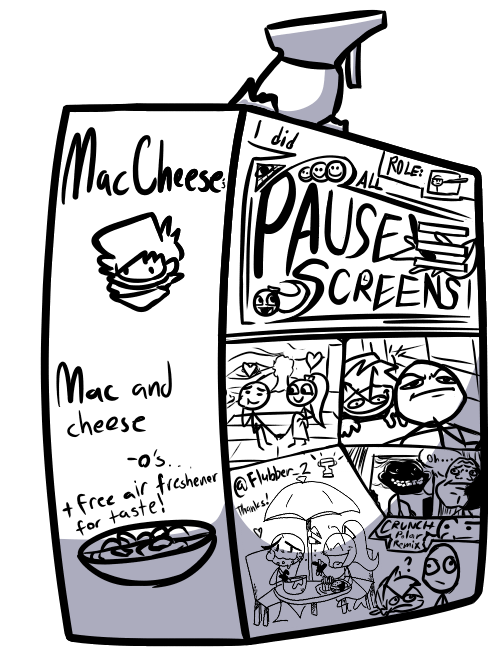 MacCheese
Mac and
cheese
-o's...
+ free air freshener
for taste!
I did
ALL
ROLE:
PAUSE
SCREENS!
@Flubber_2
Thanks!
Oh...
CRUNCH
Polar
Remix
?